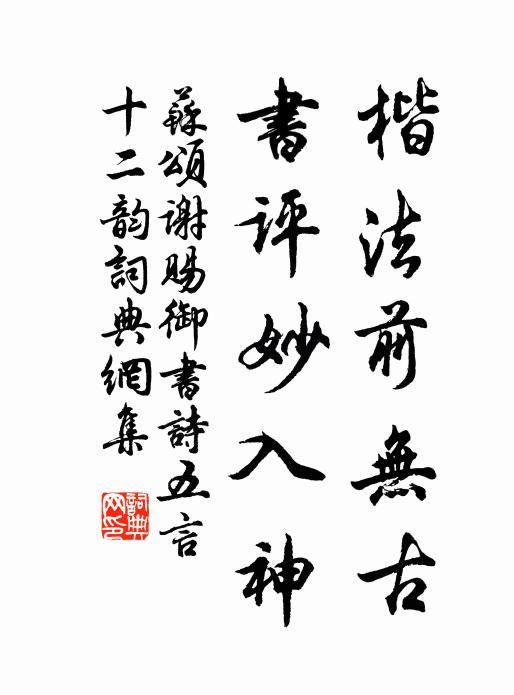 楷法前無古
書評妙入神
蘇頌謝賜御書詩五言
十二韵詞典網集
詞典
网印